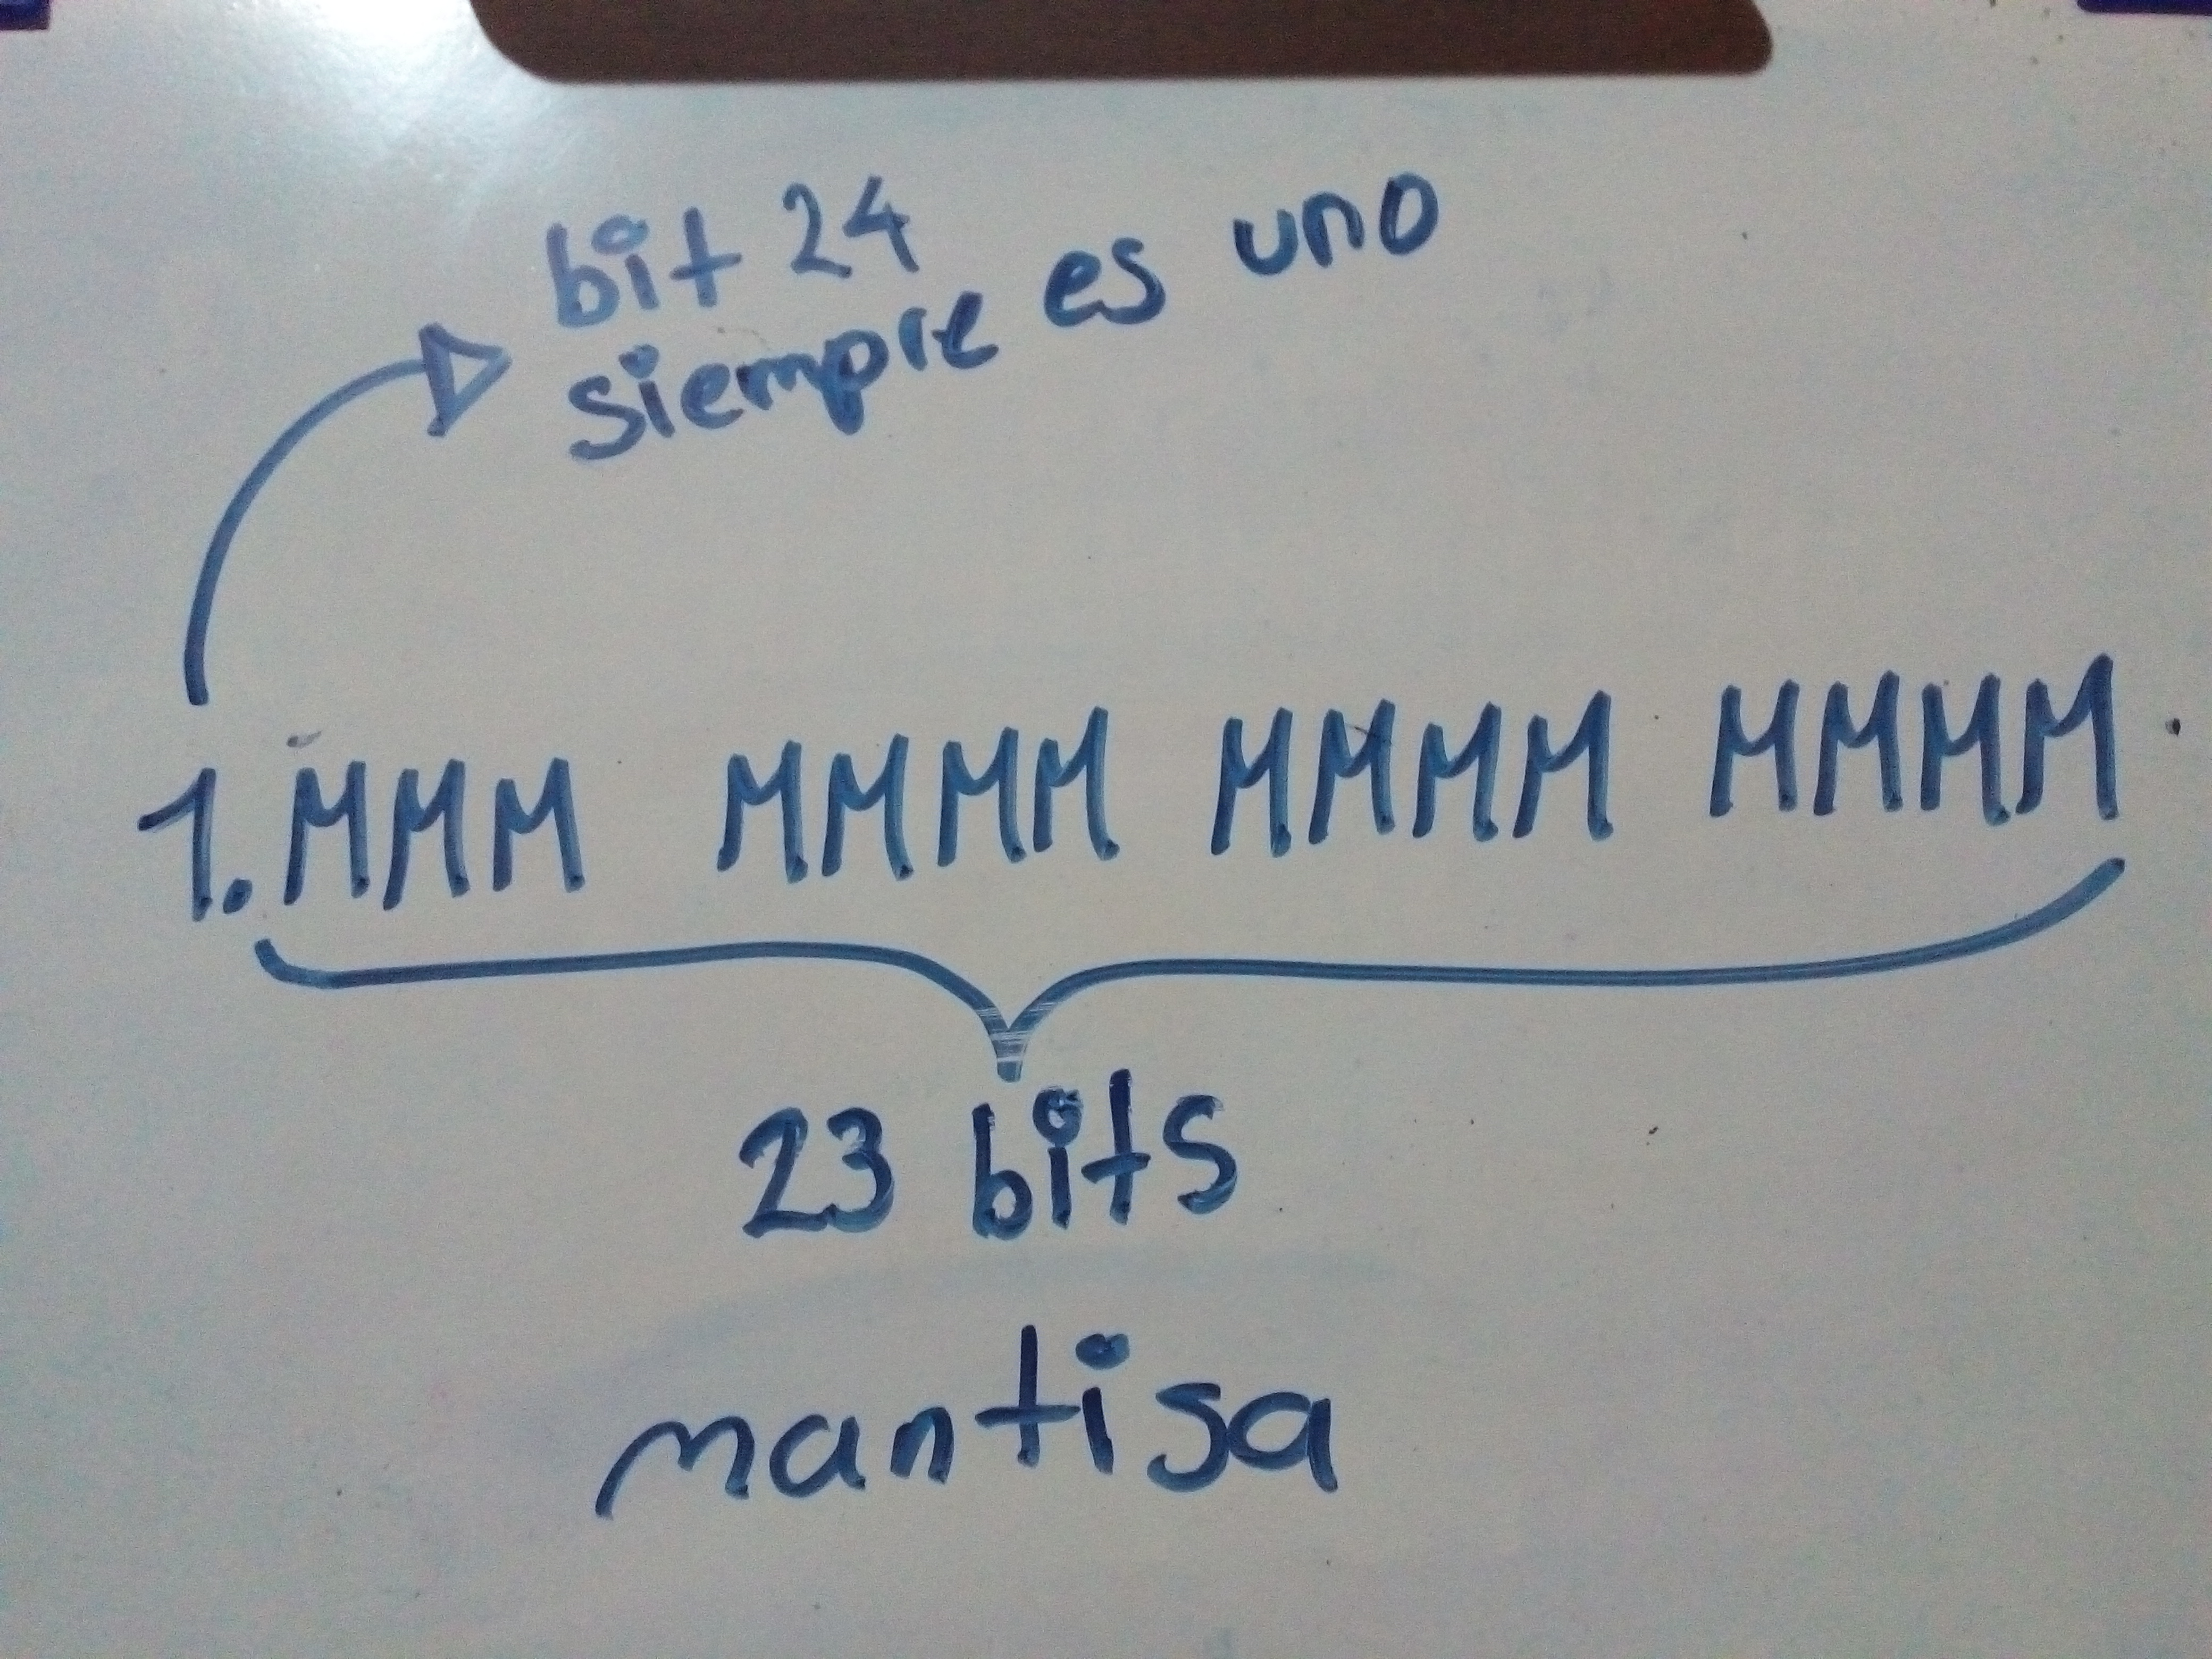 bit 24
siempre es uno
1.MMM MMMM MMMM MMMM
23 bits
mantisa